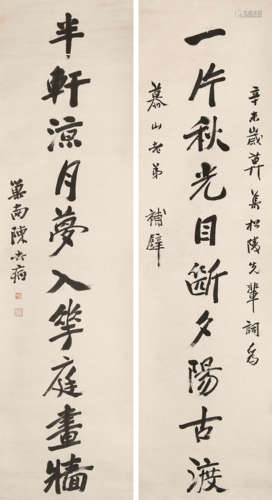 辛未歲莫集松陵先輩詞爲
一片秋光目斷夕陽古渡
慕山老弟 補壁
半軒涼月夢入華庭畫牆
巢南陳去病